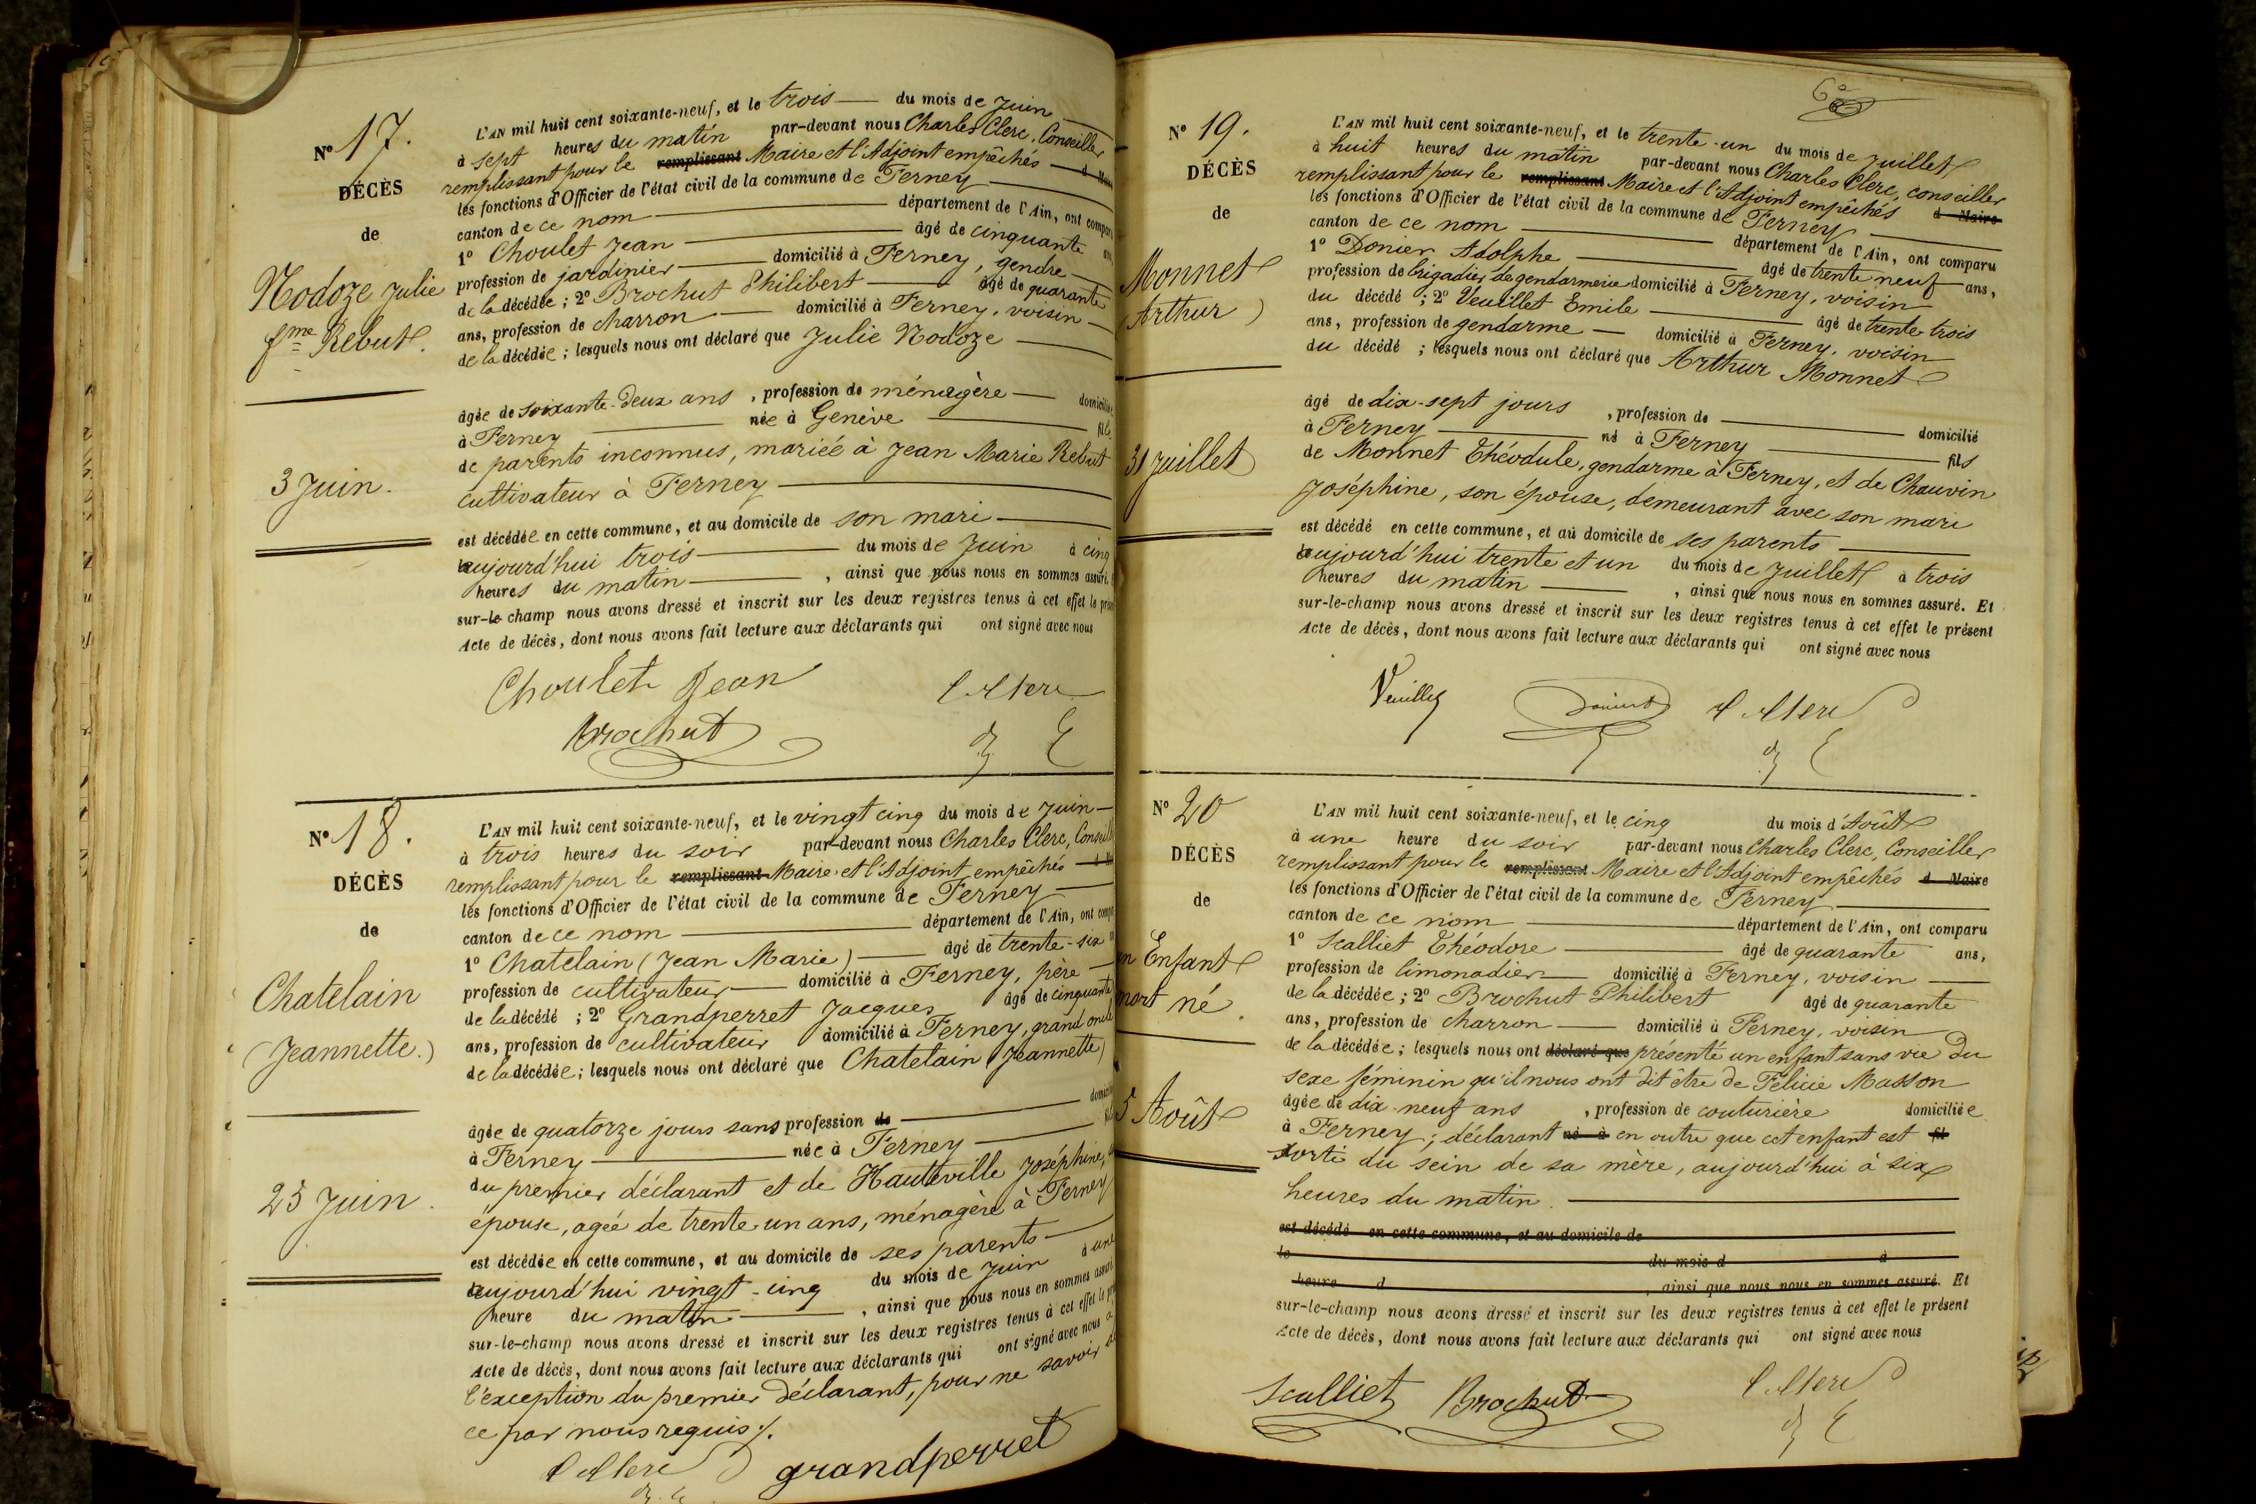 N° 17.
DÉCÈS
de
Nodoze Julie
fme Rebut.
3 Juin.
L'AN mil huit cent soixante-neuf, et le trois du mois de Juin
à sept heures du matin par-devant nous Charles Clerc, Conseiller
remplissant pour le remplissant Maire et l'Adjoint empêchés
les fonctions d'Officier de l'état civil de la commune de Ferney
canton de ce nom département de l'Ain, ont compar
1° Choulet Jean âgé de cinquante
profession de jardinier domicilié à Ferney, gendre
de la décédée; 2° Brochut Philibert âgé de quarante
ans, profession de charron domicilié à Ferney, voisin
de la décédée; lesquels nous ont déclaré que Julie Nodoze
âgée de soixante-deux ans, profession de ménagère domiciliée
à Ferney née à Genève fil
de parents inconnus, mariée à Jean Marie Rebut
cultivateur à Ferney
est décédée en cette commune, et au domicile de son mari
aujourd'hui trois du mois de Juin à cinq
heures du matin, ainsi que nous nous en sommes assuré.
sur-le-champ nous avons dressé et inscrit sur les deux registres tenus à cet effet le prés
Acte de décès, dont nous avons fait lecture aux déclarants qui ont signé avec nous
Choulet Jean C Clerc
Brochut
N° 18.
DÉCÈS
de
Chatelain
(Jeannette.)
25 Juin.
L'AN mil huit cent soixante-neuf, et le vingt cinq du mois de Juin
à trois heures du soir par-devant nous Charles Clerc, Conseill
remplissant pour le remplissant Maire et l'Adjoint empêchés
les fonctions d'Officier de l'état civil de la commune de Ferney
canton de ce nom département de l'Ain, ont compar
1° Chatelain (Jean Marie) âgé de trente-six
profession de cultivateur domicilié à Ferney, père
de la décédé; 2° Grandperret Jacques âgé de cinquante
ans, profession de cultivateur domicilié à Ferney, grand oncle
de la décédée; lesquels nous ont déclaré que Chatelain (Jeannette)
âgée de quatorze jours sans profession de domicil
à Ferney née à Ferney fil
du premier déclarant et de Hauteville Joséphine,
épouse, agée de trente-un ans, ménagère à Ferney
est décédée en cette commune, et au domicile de ses parents
aujourd'hui vingt-cinq du mois de Juin à une
heure du matin, ainsi que nous nous en sommes assuré
sur-le-champ nous avons dressé et inscrit sur les deux registres tenus à cet effet le pr
Acte de décès, dont nous avons fait lecture aux déclarants qui ont signé avec nous à
l'exception du premier déclarant, pour ne savoir
ce par nous requis ./.
C Clerc grandperret
N° 19.
DÉCÈS
de
Monnet
(Arthur)
31 Juillet
L'AN mil huit cent soixante-neuf, et le trente-un du mois de Juillet
à huit heures du matin par-devant nous Charles Clerc, conseiller
remplissant pour le remplissant Maire et l'Adjoint empêchés d Maire
les fonctions d'Officier de l'état civil de la commune de Ferney
canton de ce nom département de l'Ain, ont comparu
1° Donier Adolphe âgé de trente neuf ans,
profession de brigadier de gendarmerie domicilié à Ferney, voisin
du décédé; 2° Veuillet Emile âgé de trente trois
ans, profession de gendarme domicilié à Ferney, voisin
du décédé; lesquels nous ont déclaré que Arthur Monnet
âgé de dix-sept jours, profession de domicilié
à Ferney né à Ferney fils
de Monnet Théodule, gendarme à Ferney, et de Chauvin
Joséphine, son épouse, demeurant avec son mari
est décédé en cette commune, et au domicile de ses parents
aujourd'hui trente et un du mois de Juillet à trois
heures du matin, ainsi que nous nous en sommes assuré. Et
sur-le-champ nous avons dressé et inscrit sur les deux registres tenus à cet effet le présent
Acte de décès, dont nous avons fait lecture aux déclarants qui ont signé avec nous
C Clerc
N° 20
DÉCÈS
de
un Enfant
mort né.
5 Août
L'AN mil huit cent soixante-neuf, et le cinq du mois d'Août
à une heure du soir par-devant nous Charles Clerc, Conseiller
remplissant pour le remplissant Maire et l'Adjoint empêchés d Maire
les fonctions d'Officier de l'état civil de la commune de Ferney
canton de ce nom département de l'Ain, ont comparu
1° Scalliet Théodore âgé de quarante ans,
profession de limonadier domicilié à Ferney, voisin
de la décédée; 2° Brochut Philibert âgé de quarante
ans, profession de charron domicilié à Ferney, voisin
de la décédée; lesquels nous ont déclaré que présenté un enfant sans vie du
sexe féminin qu'il nous ont dit être de Félicie Masson
âgée de dix-neuf ans, profession de couturière domiciliée
à Ferney; déclarant né à en outre que cet enfant est fil
sorti du sein de sa mère, aujourd'hui à six
heures du matin.
est décédé en cette commune, et au domicile de
le du mois d à
heure d, ainsi que nous nous en sommes assuré. Et
sur-le-champ nous avons dressé et inscrit sur les deux registres tenus à cet effet le présent
Acte de décès, dont nous avons fait lecture aux déclarants qui ont signé avec nous
Scalliet Brochut C Clerc